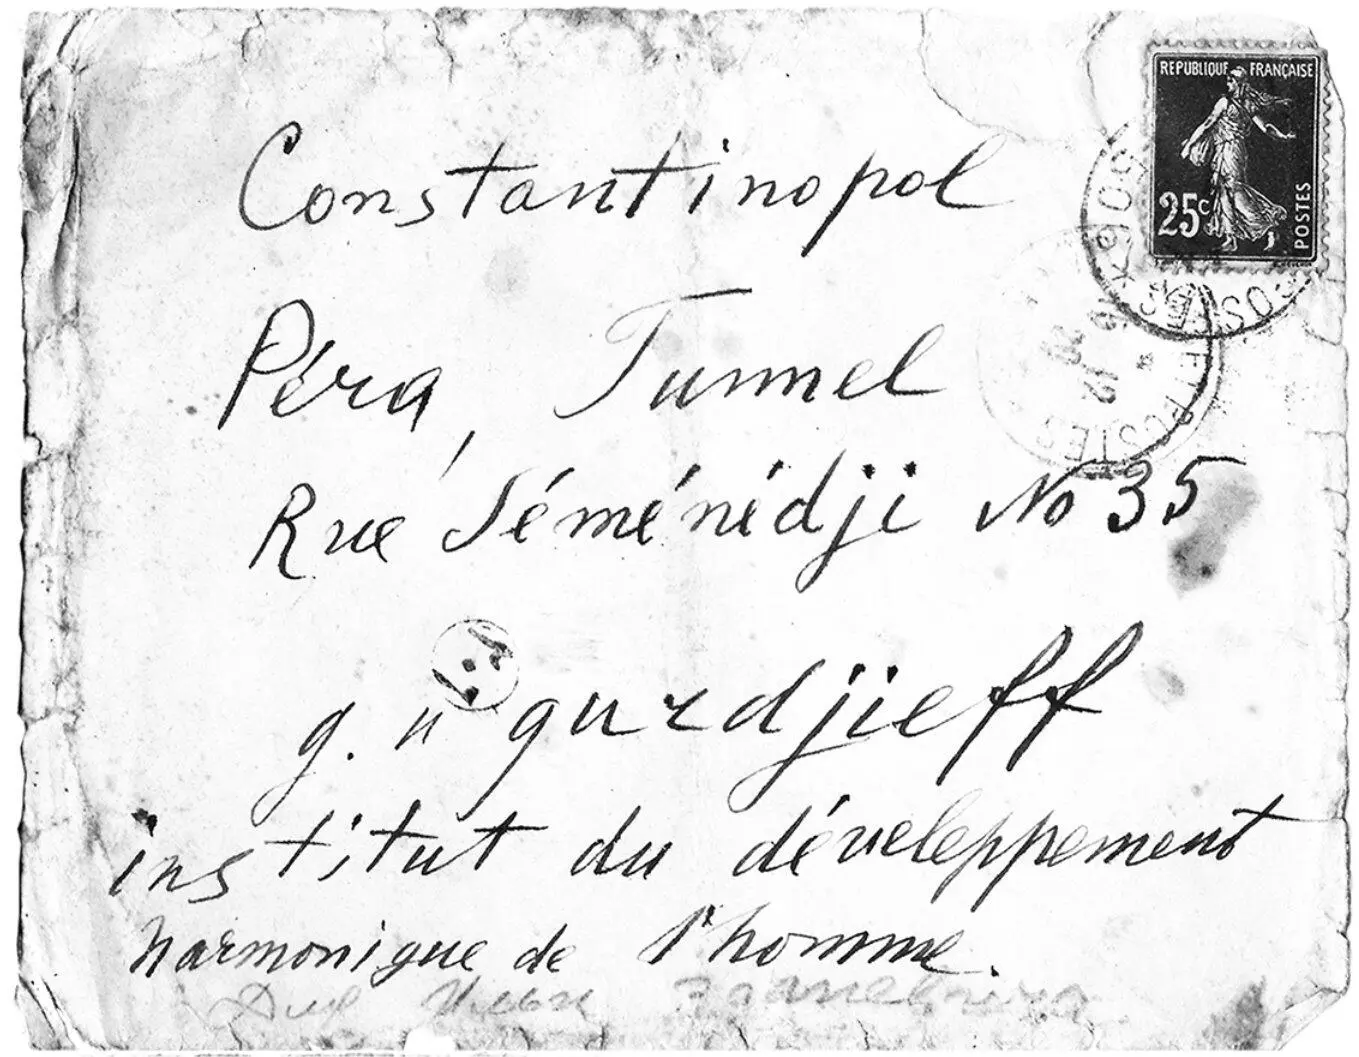 REPUBLIQUE FRANÇAISE
25c
POSTES
Constantinopol
Péra, Tunnel
Rue Séménédji No 35
g. gurdjieff
institut du développement
harmonique de l'homme.